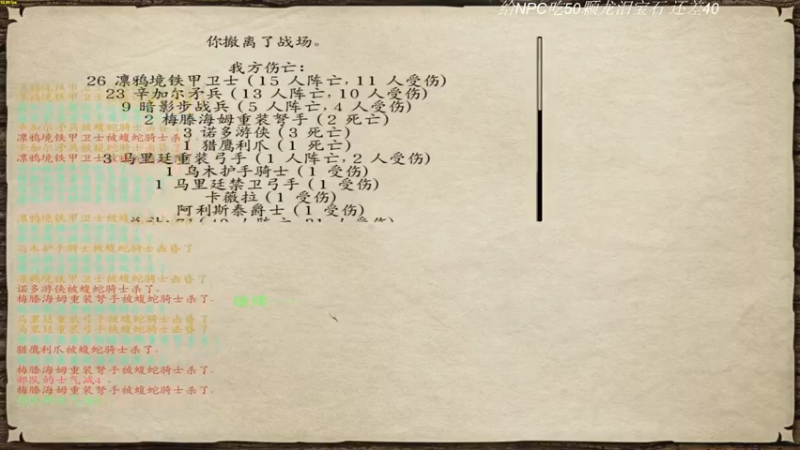 给NPC吃50颗龙泪宝石 还差40
你撤离了战场。
我方伤亡：
26 凛鸦境铁甲卫士（15 人阵亡，11 人受伤）
23 辛加尔矛兵（13 人阵亡，10 人受伤）
9 暗影步战兵（5 人阵亡，4 人受伤）
2 梅滕海姆重装弩手（2 死亡）
3 诺多游侠（3 死亡）
1 猎鹰利爪（1 死亡）
3 马里廷重装弓手（1 人阵亡，2 人受伤）
1 乌木护手骑士（1 受伤）
1 马里廷禁卫弓手（1 受伤）
卡薇拉（1 受伤）
阿利斯泰爵士（1 受伤）
凛鸦境铁甲卫士被蝰蛇骑士杀
乌木护手骑士被蝰蛇骑士击昏了
凛鸦境铁甲卫士被蝰蛇骑士击昏了
诺多游侠被蝰蛇骑士杀了。
梅滕海姆重装弩手被蝰蛇骑士杀了。
马里廷重装弓手被蝰蛇骑士击昏了
马里廷重装弓手被蝰蛇骑士击昏了
猎鹰利爪被蝰蛇骑士杀了。
梅滕海姆重装弩手被蝰蛇骑士杀了。
部队的士气减4 。
梅滕海姆重装弩手被蝰蛇骑士杀了。